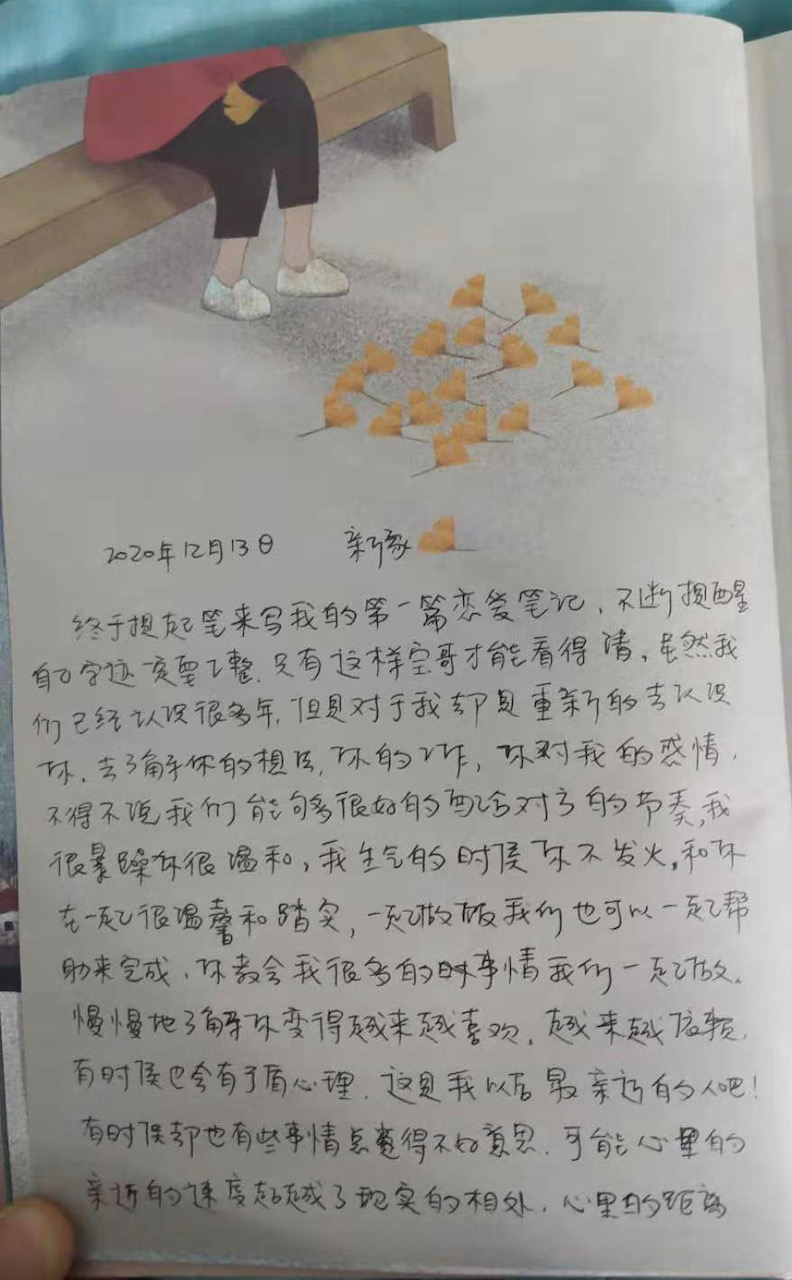 2020年12月13日 新家
终于提起笔来写我的第一篇恋爱笔记、不断提醒
自己字迹一定要工整.只有这样宝哥才能看得清,虽然我
们已经认识很多年,但是对于我却是重新的去认识
你.去了解你的想法,你的工作,你对我的感情.
不得不说我们能够很好的配合对方的节奏,我
很暴躁你很温和,我生气的时候你不发火,和你
在一起很温馨和踏实,一起做饭我们也可以一起帮
助来完成.你教会我很多的时事情我们一起做.
慢慢地了解你变得越来越喜欢.越来越依赖.
有时候也会有矛盾心理.这是我以后最亲近的人吧!
有时候却也有些事情总觉得不好意思.可能心里的
亲近的速度超越了现实的相处.心里的距离